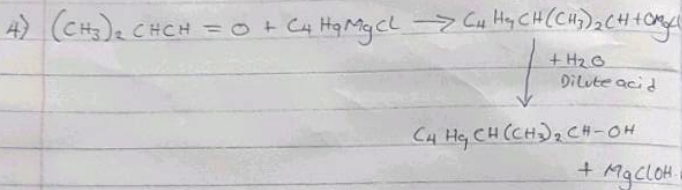 4) (CH3)2 CHCH = O + C4 H9MgCl → C4 H9 CH(CH3)2 CH+OMgCl
+ H2O
Dilute acid
C4 H9 CH(CH3)2 CH-OH
+ MgClOH.